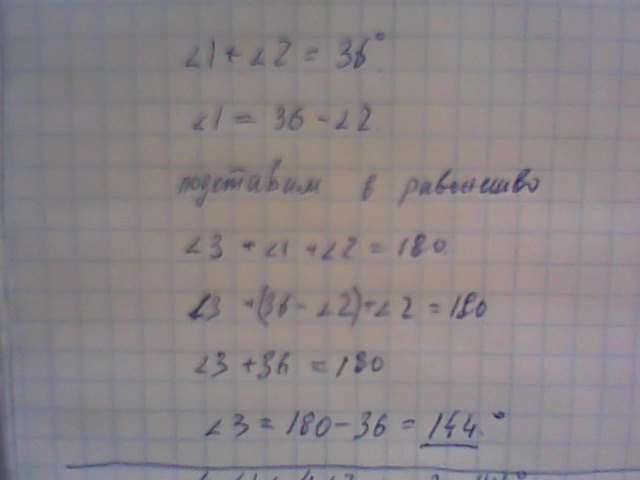 ∠1 + ∠2 = 36°
∠1 = 36 - ∠2
подставим в равенство
∠3 + ∠1 + ∠2 = 180
∠3 + (36 - ∠2) + ∠2 = 180
∠3 + 36 = 180
∠3 = 180 - 36 = 144°